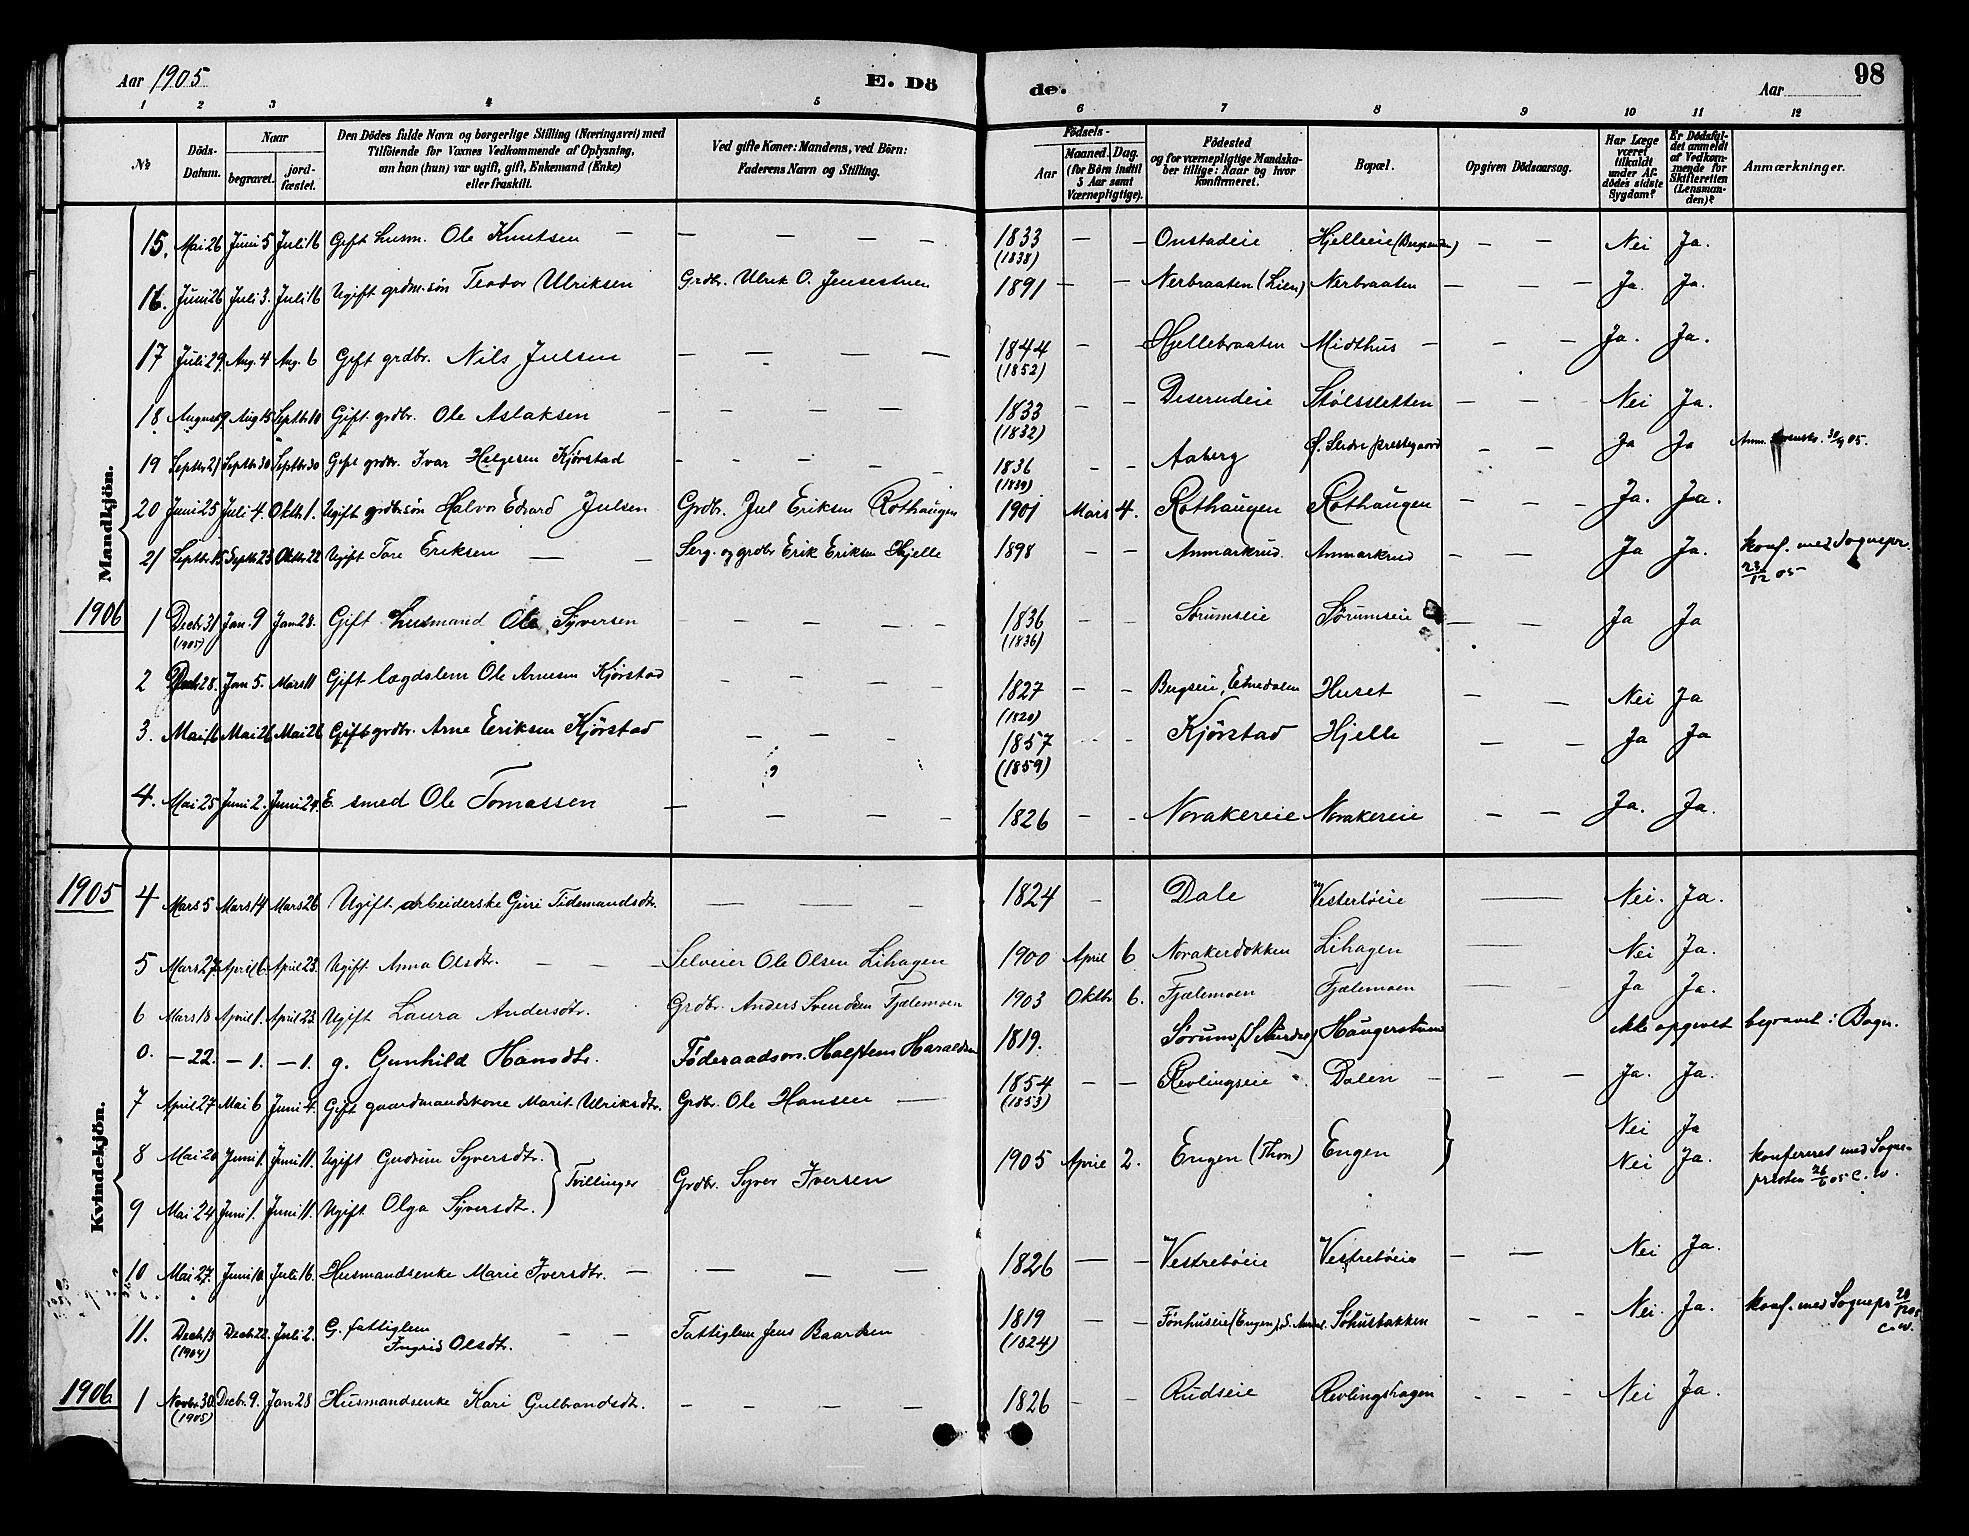 Aar 1905 E. Dö de. Aar 98
1 2 3 4 5 6 7 8 9 10 11 12
№
Döds-Datum.
Naar
begravet.
jord-fæstet.
Den Dödes fulde Navn og borgerlige Stilling (Næringsvei) med
Tilföiende for Voxnes Vedkommende af Oplysning,
om han (hun) var ugift, gift, Enkemand (Enke)
eller fraskilt.
Ved gifte Koner: Mandens, ved Börn:
Faderens Navn og Stilling.
Födsels-
Aar
Maaned. Dag.
(for Börn indtil
5 Aar samt
Værnepligtige).
Födested
og for værnepligtige Mandska-
ber tillige: Naar og hvor
konfirmeret.
Bopæl.
Opgiven Dödsaarsag.
Har Læge
været
tilkaldt
under Af-
dödes sidste
Sygdom?
Er Dödsfal-
det anmeldt
af Vedkom-
mende for
Skifteretten
(Lensman-
den)?
Anmærkninger.
Mandkjön.
15. Mai 26 Juni 5 Juli 16 Gift husm. Ole Knutsen — — — — — 1833 — — Onstadeie Hjelleeie — — Nei Ja.
(1838)
16. Juni 26 Juli 3. Juli 16 Ugift grdm.sön Teodor Ulriksen Grdbr. Ulrik O. Jensestuen 1891 — — Nerbraaten (Lien) Nerbraaten — — — Ja. Ja.
17 Juli 29. Aug. 4 Aug. 6 Gift grdbr. Nils Julsen — — — — 1844 — — Hjellebraaten Midthus — — — Ja. Ja.
(1852)
18. August 9. Aug 15 Septbr. 10 Gift grdbr. Ole Aslaksen — — — — — 1833 — — Diserudeie Stølssletten — — Nei Ja.
(1832)
19 Septbr. 21 Septbr. 30 Septbr. 30 Gift grdbr. Ivar Helgesen Kjørstad — — — — 1836 — — Aaberg prestegaard — — Ja Ja 30/9 05.
(1839)
20 Juni 25 Juli 4. Oktbr 1. Ugift grdbrsön Halvor Edvard Julsen Grdbr. Jul Eriksen Rothaugen 1901 Mars 4. Rothaugen Rothaugen — — Ja. Ja.
21 Septbr. 15 Septbr 23 Oktbr 22 Ugift Tore Eriksen — — Serg. og grdbr Erik Eriksen Hjelle 1898 — — Anmarkrud. Anmarkrud — — Ja Ja. konf. med Sognepr.
23/12 05
1906 1 Decbr. 31 Jan. 9 Jan. 28. Gift husmand Ole Syversen — — — — 1836 — — Sørumseie Sørumseie — — Ja Ja
(1905) (1836)
2 Decbr. 28. Jan 5. Mars 11 Gift lægdslem Ole Arnesen Kjørstad — — — — 1827 — — Bergseie, Etnedalen Huset — — Nei Ja
(1820)
3. Mai 16 Mai 26 Mai 26 Gift grdbr. Arne Eriksen Kjørstad — — — 1857 — — Kjørstad Hjelle — — Ja Ja
(1859)
4. Mai 25 Juni 2. Juni 24. E. smed Ole Tomassen — — — — 1826 — — Norakereie Norakereie — — Ja. Ja.
Kvindekjön.
1905 4 Mars 5 Mars 14 Mars 26 Ugift arbeiderske Guri Tidemandsdtr. — — — 1824 — Dale Vesterbøeie — Nei. Ja.
5 Mars 27. April 6. April 23. Ugift Anna Olsdtr. — — — Selveier Ole Olsen Lihagen 1900 April 6 Norakerdokken Lihagen — Nei Ja.
6 Mars 18 April 1. April 23. Ugift Laura Andersdtr. Grdbr. Anders Svendsen Fjælemoen 1903 Oktbr 6. Fjælemoen Fjælemoen — Ja Ja.
0. — 22. — 1. — 1. g. Gunhild Hansdtr. Föderaadsm. Halsten Haraldsen 1819. Sørum (S. Aurdal) Haugerstuen ikke opgivet begravet i Bagn.
7 April 27 Mai 6 Juni 4. Gift gaardmandskone Marit Ulriksdtr. Grdbr. Ole Hansen — 1854 — — Revlingseie Dalen — — — Ja. Ja.
(1853)
8 Mai 20 Juni 1. Juni 11. Ugift Gudrun Syversdtr. Tvillinger Grdbr. Syver Iversen 1905 April 2. Engen (Thon) Engen Nei Ja
9 Mai 24 Juni 1. Juni 11. Ugift Olga Syversdtr. Nei Ja. konfereret med Sogne-
presten 26/6 05 C. W.
10 Mai 27. Juni 10. Juli 16. Husmandsenke Marie Iversdtr. — — — — 1826 — — Vestrebøeie Vestrebøeie — — Nei Ja.
11. Decbr. 13 Decbr. 22. Juli 2. G. fattiglem — — Fattiglem Jens Baardsen 1819 — — Fønhuseie (Engen), S. Aurdal. Søhusbakken — — — Nei. Ja. konf. med Sognepr
(1904) Ingrid Olsdtr. (1824) C. W.
1906 1 Novbr. 30. Decbr. 9. Jan 28 Husmandsenke Kari Gulbrandsdtr. — — — — 1826 — — Rudseie Revlingshagen — — — Nei Ja.
(1905)